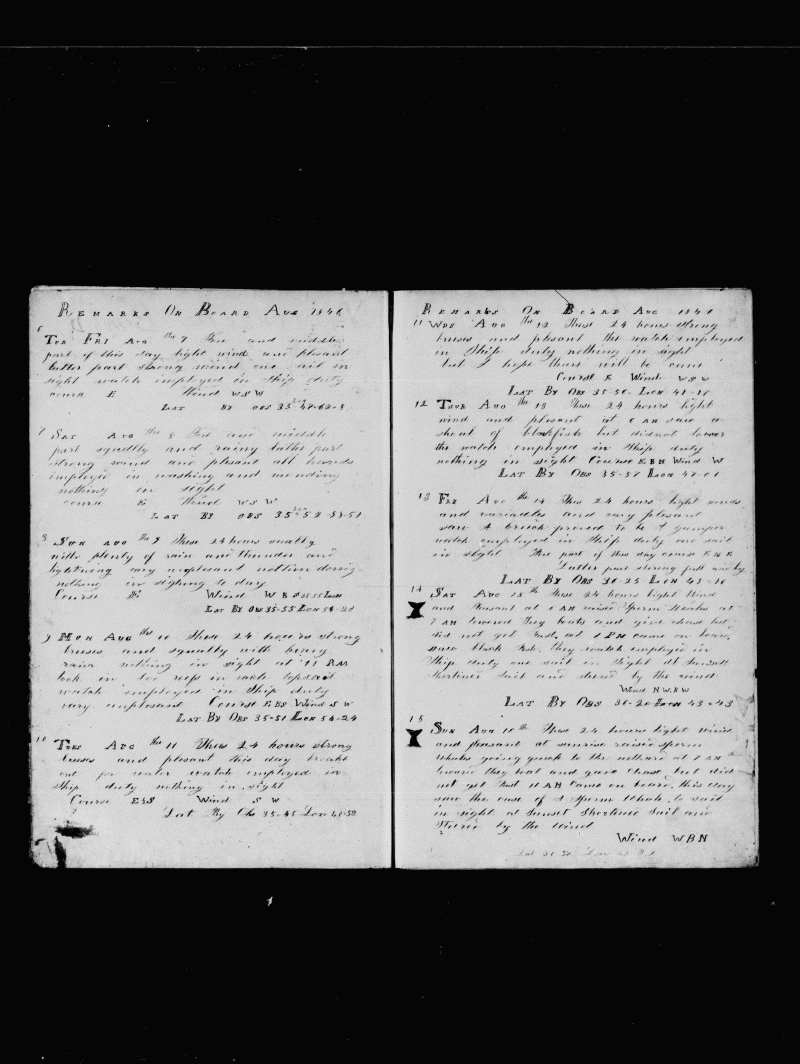 Remarks On Board Aug 1846
6
Fri Aug the 7 First and middle
part of this day light wind and plesant
latter part strong wind one sail in
sight watch imployed in Ship duty
cours E Wind WSW
Lat By obs 35-47
7 Sat Aug the 8 First and middle
part squally and rainy latter part
strong wind and plesant all hands
imployed in washing and mending
nothing in sight
course E Wind W S W
Lat By obs 35-52
8 Sun Aug the 9 These 24 hours squally
with plenty of rain and thunder and
lightning vary unplesant nothing
nothing in to day
Course Wind W B
Lat By Obs 35-55 Lon 54-20
9 Mon Aug the 10 These 24 hours strong
breses and squally with heavy
rain nothing in sight at 11 PM
took in reefs in each topsail
watch imployed in Ship duty
vary unplesant Course E B S Wind S W
Lat By Obs 35-51 Lon 54-24
10 Tues Aug the 11 These 24 hours strong
breses and plesant this day
out water watch employed in
Ship duty nothing in sight
Course E B S Wind S W
Lat By Obs 35-45 Lon
Remarks On Board Aug 1846
11 Wds Aug the 12 These 24 hours strong
breses and plesant the watch employed
in Ship duty nothing in sight
but I hope thare will be
Course E Wind W S W
Lat By Obs 35-56 Lon 41-17
12 Thur Aug the 13 These 24 hours light
wind and plesant at 6 AM saw a
sheal of blackfish but did not lower
the watch employed in Ship duty
nothing in sight Course E B N Wind W
Lat By Obs 35-57 Lon 47-01
13 Fri Aug the 14 These 24 hours light winds
and variables and vary plesant
saw A proved to be A
watch employed in Ship duty one sail
in sight First part of this day course
Latter part strong full and by
Lat By Obs 36-25 Lon 45-16
14 Sat Aug 15 th These 24 hours light Wind
and Plesant at 6 AM raised Sperm Whales at
7 AM lowered they boats and give chase but
did not get fast at 1 PM came on board
saw black fish they watch employed in
Ship duty one sail in Sight at Sunset
Shortined Sail and by the wind
Wind N W B W
Lat By Obs 36-20 Lon 43-43
15 Sun Aug 16 th These 24 hours light wind
and plesant at sunrise raised Sperm
Whales going quick to the at 6 AM
lowered they boat and gave Chase but did
not get fast 11 AM came on board this day
saw the case of A Sperm Whale to sail
in sight at Sunset Shortined Sail and
Steered by the Wind
Wind W B N